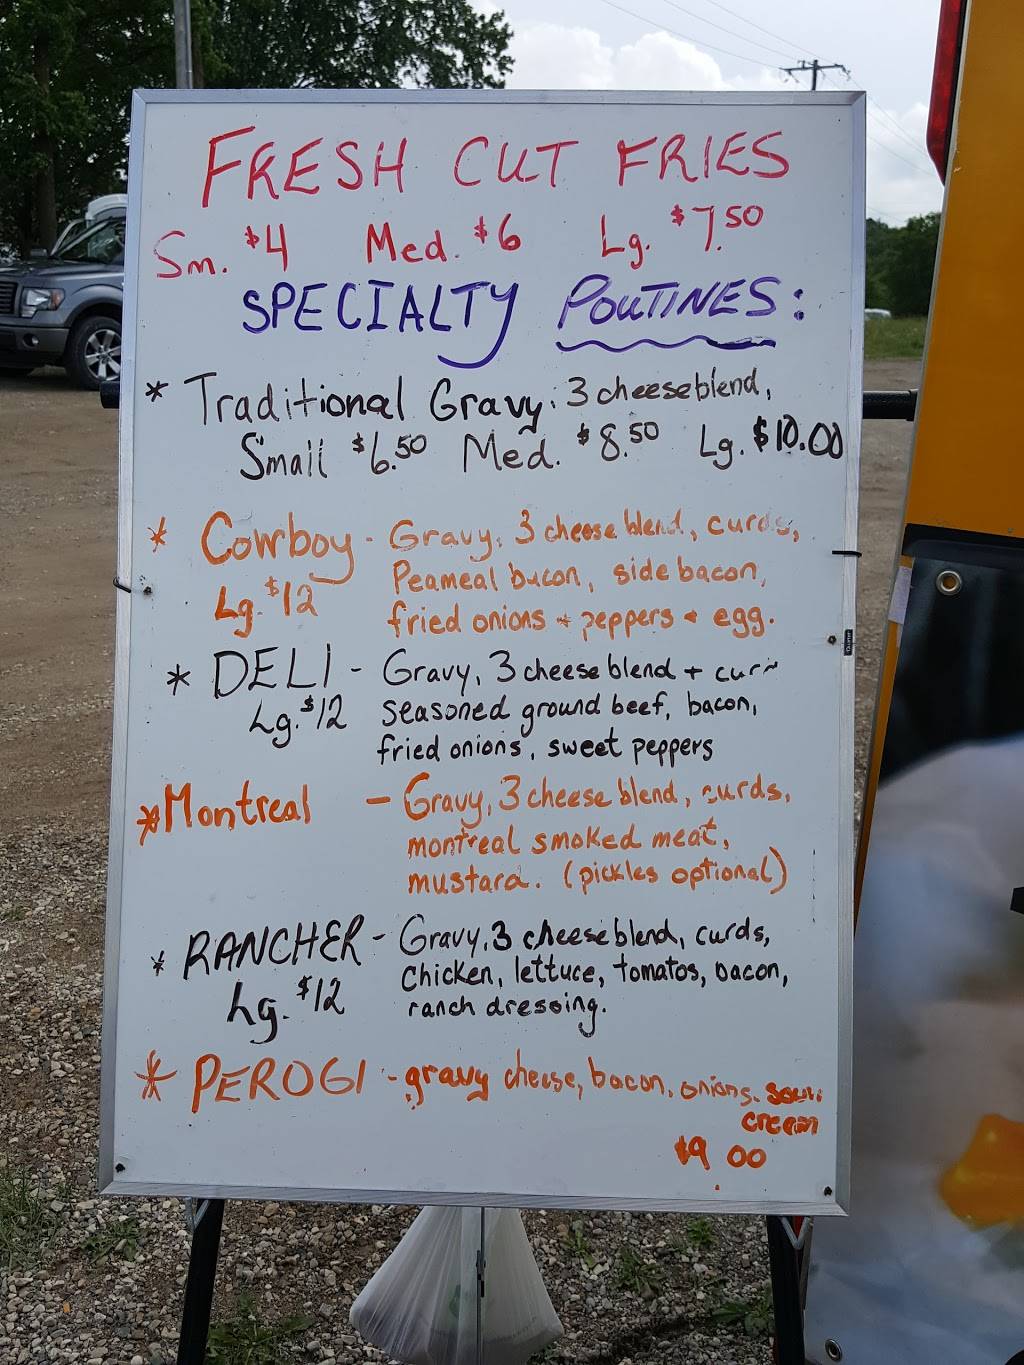 FRESH CUT FRIES
Sm. $4 Med. $6 Lg. $7.50
SPECIALTY POUTINES:
* Traditional Gravy, 3 cheese blend,
Small $6.50 Med. $8.50 Lg. $10.00
* Cowboy - Gravy, 3 cheese blend, curds,
Lg. $12 Peameal bacon, side bacon,
fried onions + peppers + egg.
* DELI - Gravy, 3 cheese blend + cur
Lg. $12 seasoned ground beef, bacon,
fried onions, sweet peppers
* Montreal - Gravy, 3 cheese blend, curds,
montreal smoked meat,
mustard. (pickles optional)
* RANCHER - Gravy, 3 cheese blend, curds,
Lg. $12 chicken, lettuce, tomatos, bacon,
ranch dressing.
* PEROGI - gravy cheese, bacon, onions, sour
cream
$9.00